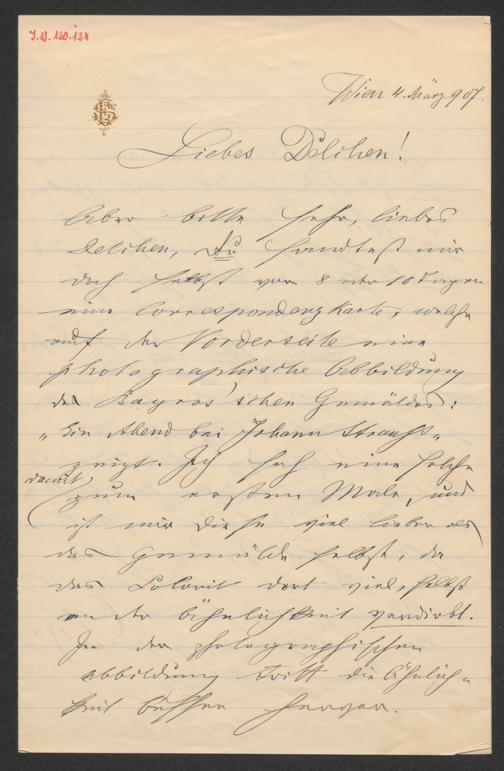 I.N. 120.124
Wien 4. März 907.
Liebes Delchen!
Aber bitte sehr, liebes
Delchen, Du sandtest mir
doch selbst vor 8 oder 10 Tagen
eine Correspondenzkarte, welche
auf der Vorderseite eine
photographische Abbildung
des Bayros'schen Gemäldes:
„Ein Abend bei Johann Strauss„
zeigt. Ich sah eine solche
damit
zum ersten Male, und
ist mir diese viel lieber als
das Gemälde selbst, da
das Colorit dort viel, selbst
an der Ähnlichkeit verdirbt.
In der photographischen
Abbildung tritt die Ähnlich-
keit besser hervor.